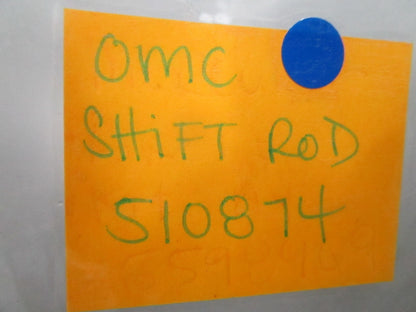 OMC
SHiFT RoD
510874